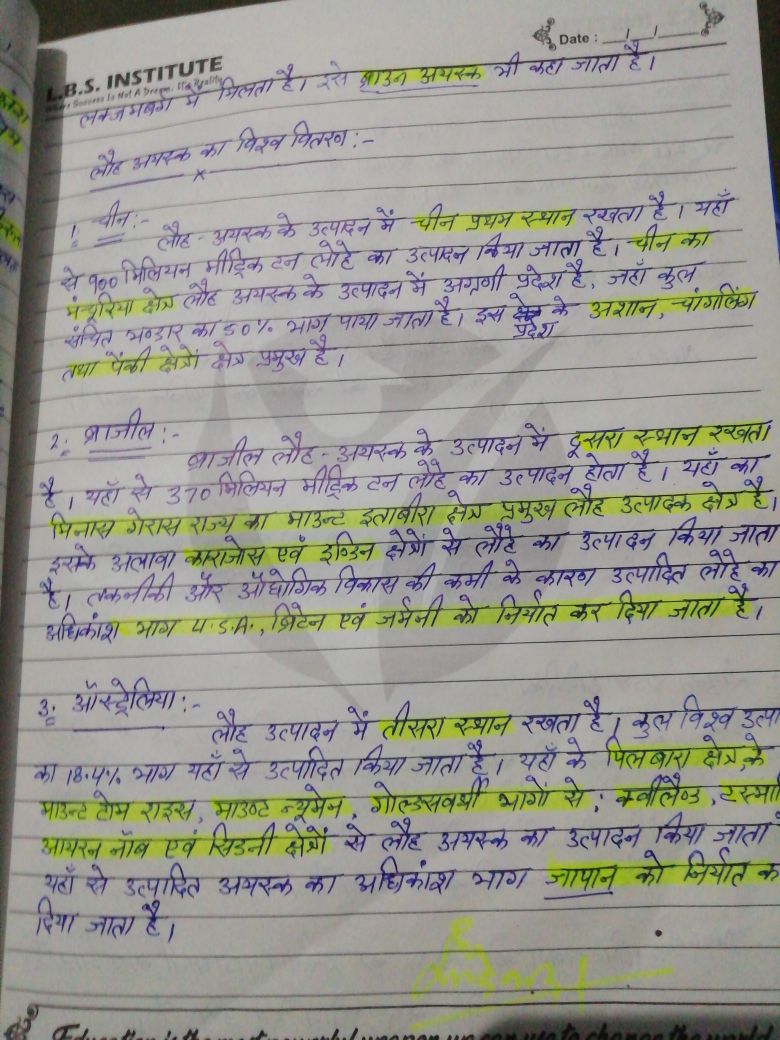 Date : / /
L.B.S. INSTITUTE
Where Success Is Not A Dream, It's Reality
लक्जमबर्ग में मिलता है। इसे ब्राउन अयस्क भी कहा जाता है।
लौह अयस्क का विश्व वितरण :-
1. चीन :-
लौह - अयस्क के उत्पादन में चीन प्रथम स्थान रखता है। यहाँ
से 900 मिलियन मीट्रिक टन लोहे का उत्पादन किया जाता है। चीन का
मंचूरिया क्षेत्र लौह अयस्क के उत्पादन में अग्रणी प्रदेश है, जहाँ कुल
संचित भण्डार का 50% भाग पाया जाता है। इस प्रदेश के अशान, चांगलिंग
तथा पेंकी क्षेत्रों क्षेत्र प्रमुख है।
2. ब्राजील :-
ब्राजील लौह - अयस्क के उत्पादन में दूसरा स्थान रखता
है। यहाँ से 370 मिलियन मीट्रिक टन लोहे का उत्पादन होता है। यहाँ का
मिनास गेरास राज्य का माउन्ट इताबीरा क्षेत्र प्रमुख लौह उत्पादक क्षेत्र है।
इसके अलावा काराजोस एवं इण्डिन क्षेत्रों से लौहे का उत्पादन किया जाता
है। तकनीकी और औद्योगिक विकास की कमी के कारण उत्पादित लोहे का
अधिकांश भाग U.S.A., ब्रिटेन एवं जर्मनी को निर्यात कर दिया जाता है।
3. ऑस्ट्रेलिया :-
लौह उत्पादन में तीसरा स्थान रखता है। कुल विश्व उत्पा
का 18.4% भाग यहाँ से उत्पादित किया जाता है। यहाँ के पिलबारा क्षेत्र के
माउन्ट टोम राइस, माउण्ट न्यूमेन, गोल्डसवर्थी भागों से, क्वींलैण्ड, टस्मा
आयरन नॉब एवं सिडनी क्षेत्रों से लौह अयस्क का उत्पादन किया जाता
यहाँ से उत्पादित अयस्क का अधिकांश भाग जापान को निर्यात क
दिया जाता है।
Education is the most powerful weapon we can use to change the world